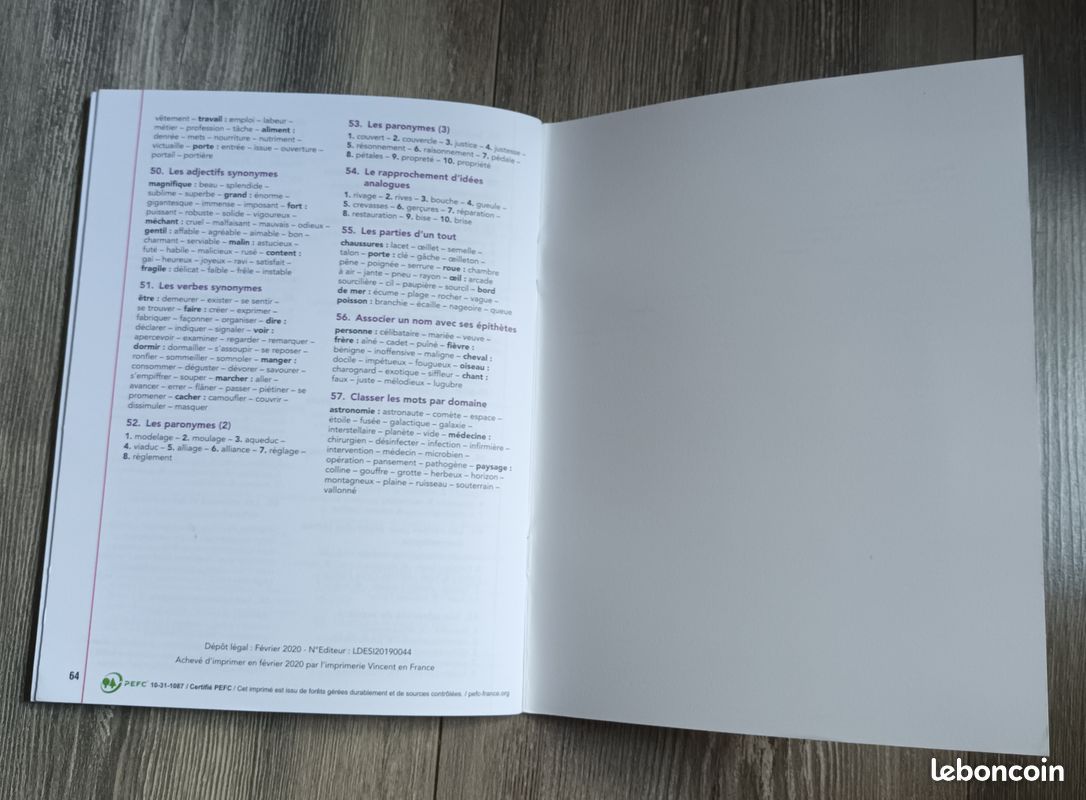 vêtement – travail : emploi – labeur –
métier – profession – tâche – aliment :
denrée – mets – nourriture – nutriment –
victuaille – porte : entrée – issue – ouverture –
portail – portière
50. Les adjectifs synonymes
magnifique : beau – splendide –
sublime – superbe – grand : énorme –
gigantesque – immense – imposant – fort :
puissant – robuste – solide – vigoureux –
méchant : cruel – malfaisant – mauvais – odieux –
gentil : affable – agréable – aimable – bon –
charmant – serviable – malin : astucieux –
futé – habile – malicieux – rusé – content :
gai – heureux – joyeux – ravi – satisfait –
fragile : délicat – faible – frêle – instable
51. Les verbes synonymes
être : demeurer – exister – se sentir –
se trouver – faire : créer – exprimer –
fabriquer – façonner – organiser – dire :
déclarer – indiquer – signaler – voir :
apercevoir – examiner – regarder – remarquer –
dormir : dormailler – s'assoupir – se reposer –
ronfler – sommeiller – somnoler – manger :
consommer – déguster – dévorer – savourer –
s'empiffrer – souper – marcher : aller –
avancer – errer – flâner – passer – piétiner – se
promener – cacher : camoufler – couvrir –
dissimuler – masquer
52. Les paronymes (2)
1. modelage – 2. moulage – 3. aqueduc –
4. viaduc – 5. alliage – 6. alliance – 7. réglage –
8. règlement
53. Les paronymes (3)
1. couvert – 2. couvercle – 3. justice – 4. justesse –
5. résonnement – 6. raisonnement – 7. pédale –
8. pétales – 9. propreté – 10. propriété
54. Le rapprochement d'idées
analogues
1. rivage – 2. rives – 3. bouche – 4. gueule –
5. crevasses – 6. gerçures – 7. réparation –
8. restauration – 9. bise – 10. brise
55. Les parties d'un tout
chaussures : lacet – œillet – semelle –
talon – porte : clé – gâche – œilleton –
pêne – poignée – serrure – roue : chambre
à air – jante – pneu – rayon – œil : arcade
sourcilière – cil – paupière – sourcil – bord
de mer : écume – plage – rocher – vague –
poisson : branchie – écaille – nageoire – queue
56. Associer un nom avec ses épithètes
personne : célibataire – mariée – veuve –
frère : aîné – cadet – puîné – fièvre :
bénigne – inoffensive – maligne – cheval :
docile – impétueux – fougueux – oiseau :
charognard – exotique – siffleur – chant :
faux – juste – mélodieux – lugubre
57. Classer les mots par domaine
astronomie : astronaute – comète – espace –
étoile – fusée – galactique – galaxie –
interstellaire – planète – vide – médecine :
chirurgien – désinfecter – infection – infirmière –
intervention – médecin – microbien –
opération – pansement – pathogène – paysage :
colline – gouffre – grotte – herbeux – horizon –
montagneux – plaine – ruisseau – souterrain –
vallonné
Dépôt légal : Février 2020 - N°Editeur : LDESI20190044
Achevé d'imprimer en février 2020 par l'imprimerie Vincent en France
64
PEFC 10-31-1087 / Certifié PEFC / Cet imprimé est issu de forêts gérées durablement et de sources contrôlées. / pefc-france.org
leboncoin